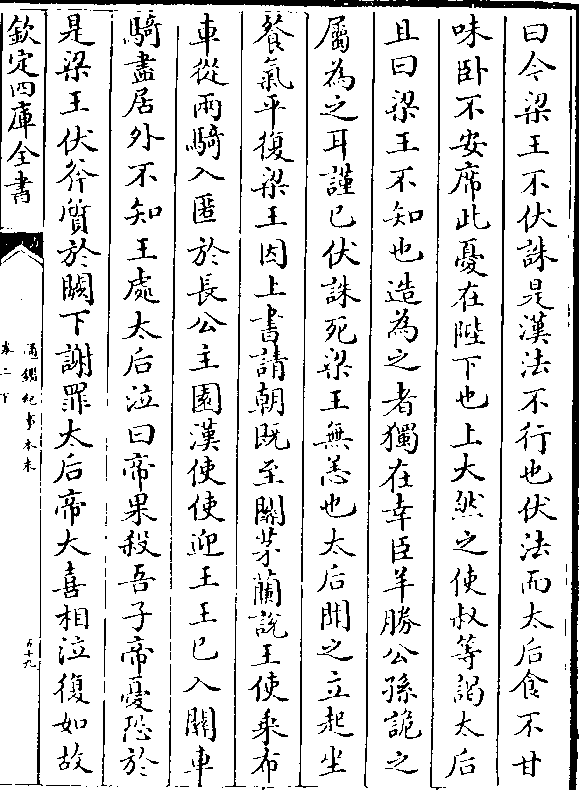 曰今梁王不伏誅是漢法不行也伏法而太后食不甘
味卧不安席此憂在陛下也上大然之使叔等謁太后
且曰梁王不知也造為之者獨在幸臣羊勝公孫詭之
屬為之耳謹已伏誅死梁王無恙也太后聞之立起坐
餐氣平復梁王因上書請朝既至關茅蘭說王使乘布
車從兩騎入匿於長公主園漢使使迎王王已入關車
騎盡居外不知王處太后泣曰帝果殺吾子帝憂恐於
是梁王伏斧質於闕下謝罪太后帝大喜相泣復如故
欽定四庫全書
通鑑紀事本末
卷二下
五十九